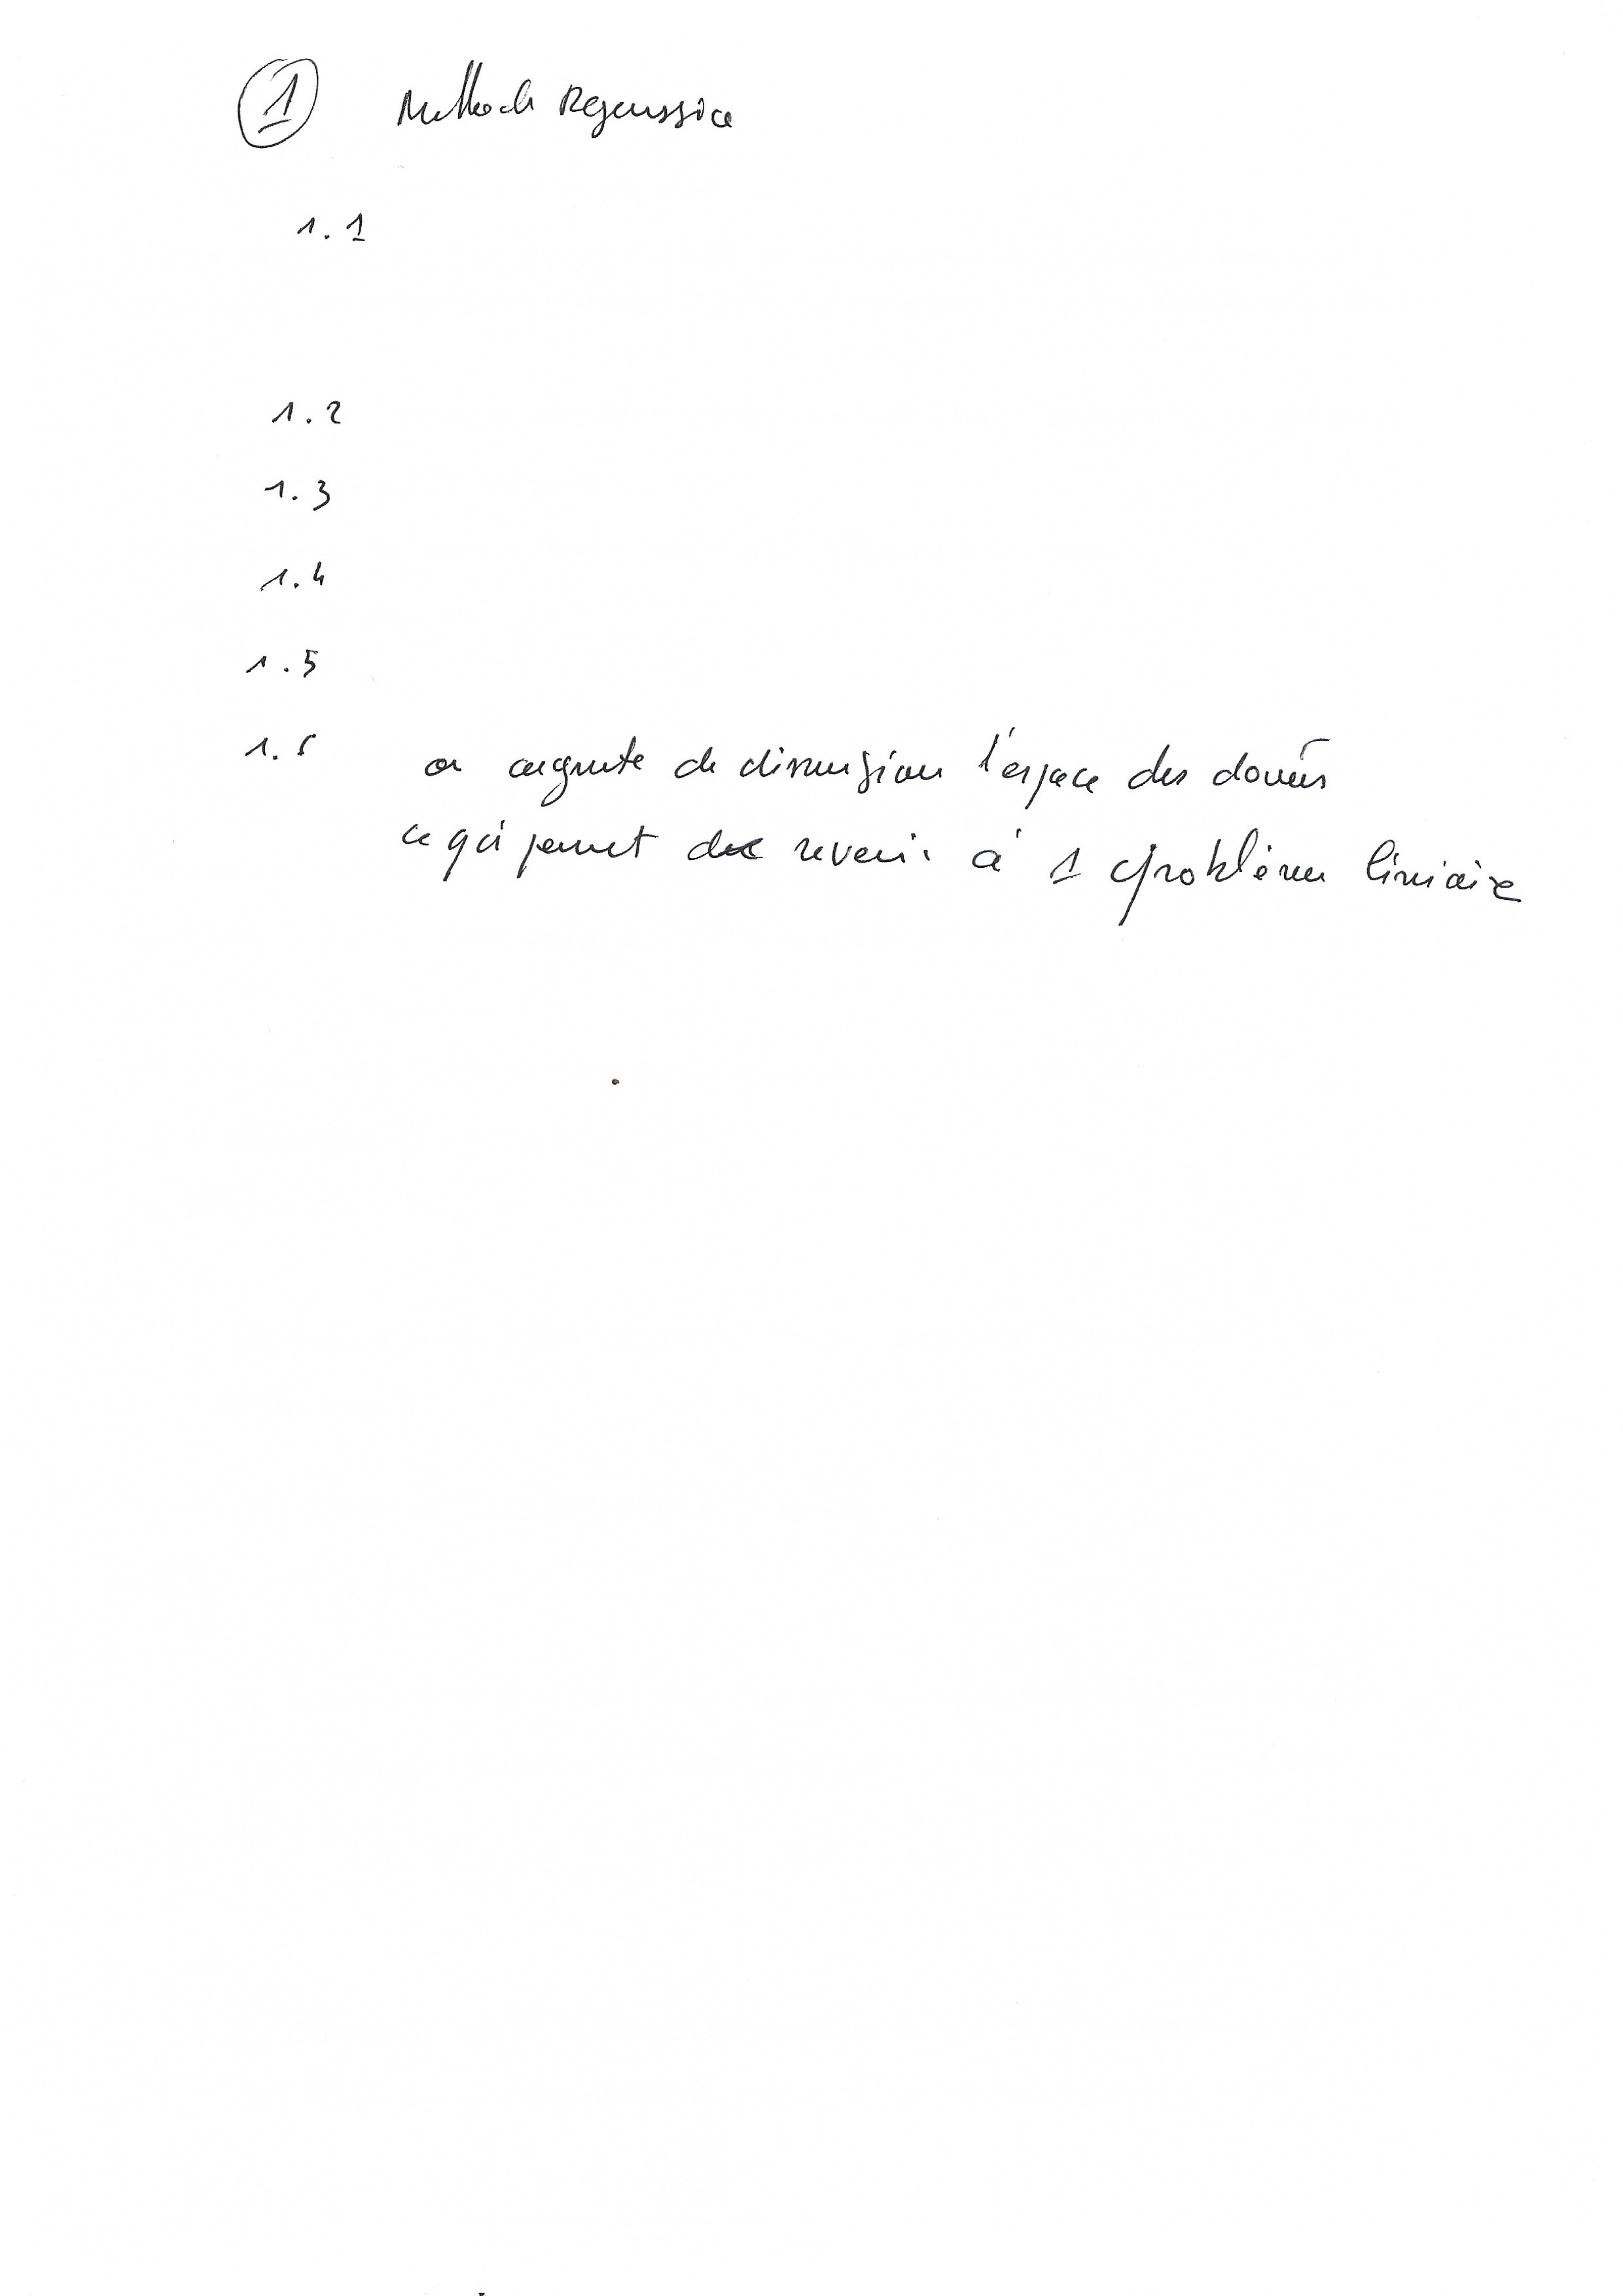 1 Methode Regression
1.1
1.2
1.3
1.4
1.5
1.6 on augmente de dimension l'espace des données
ce qui permet de revenir à 1 problème linéaire